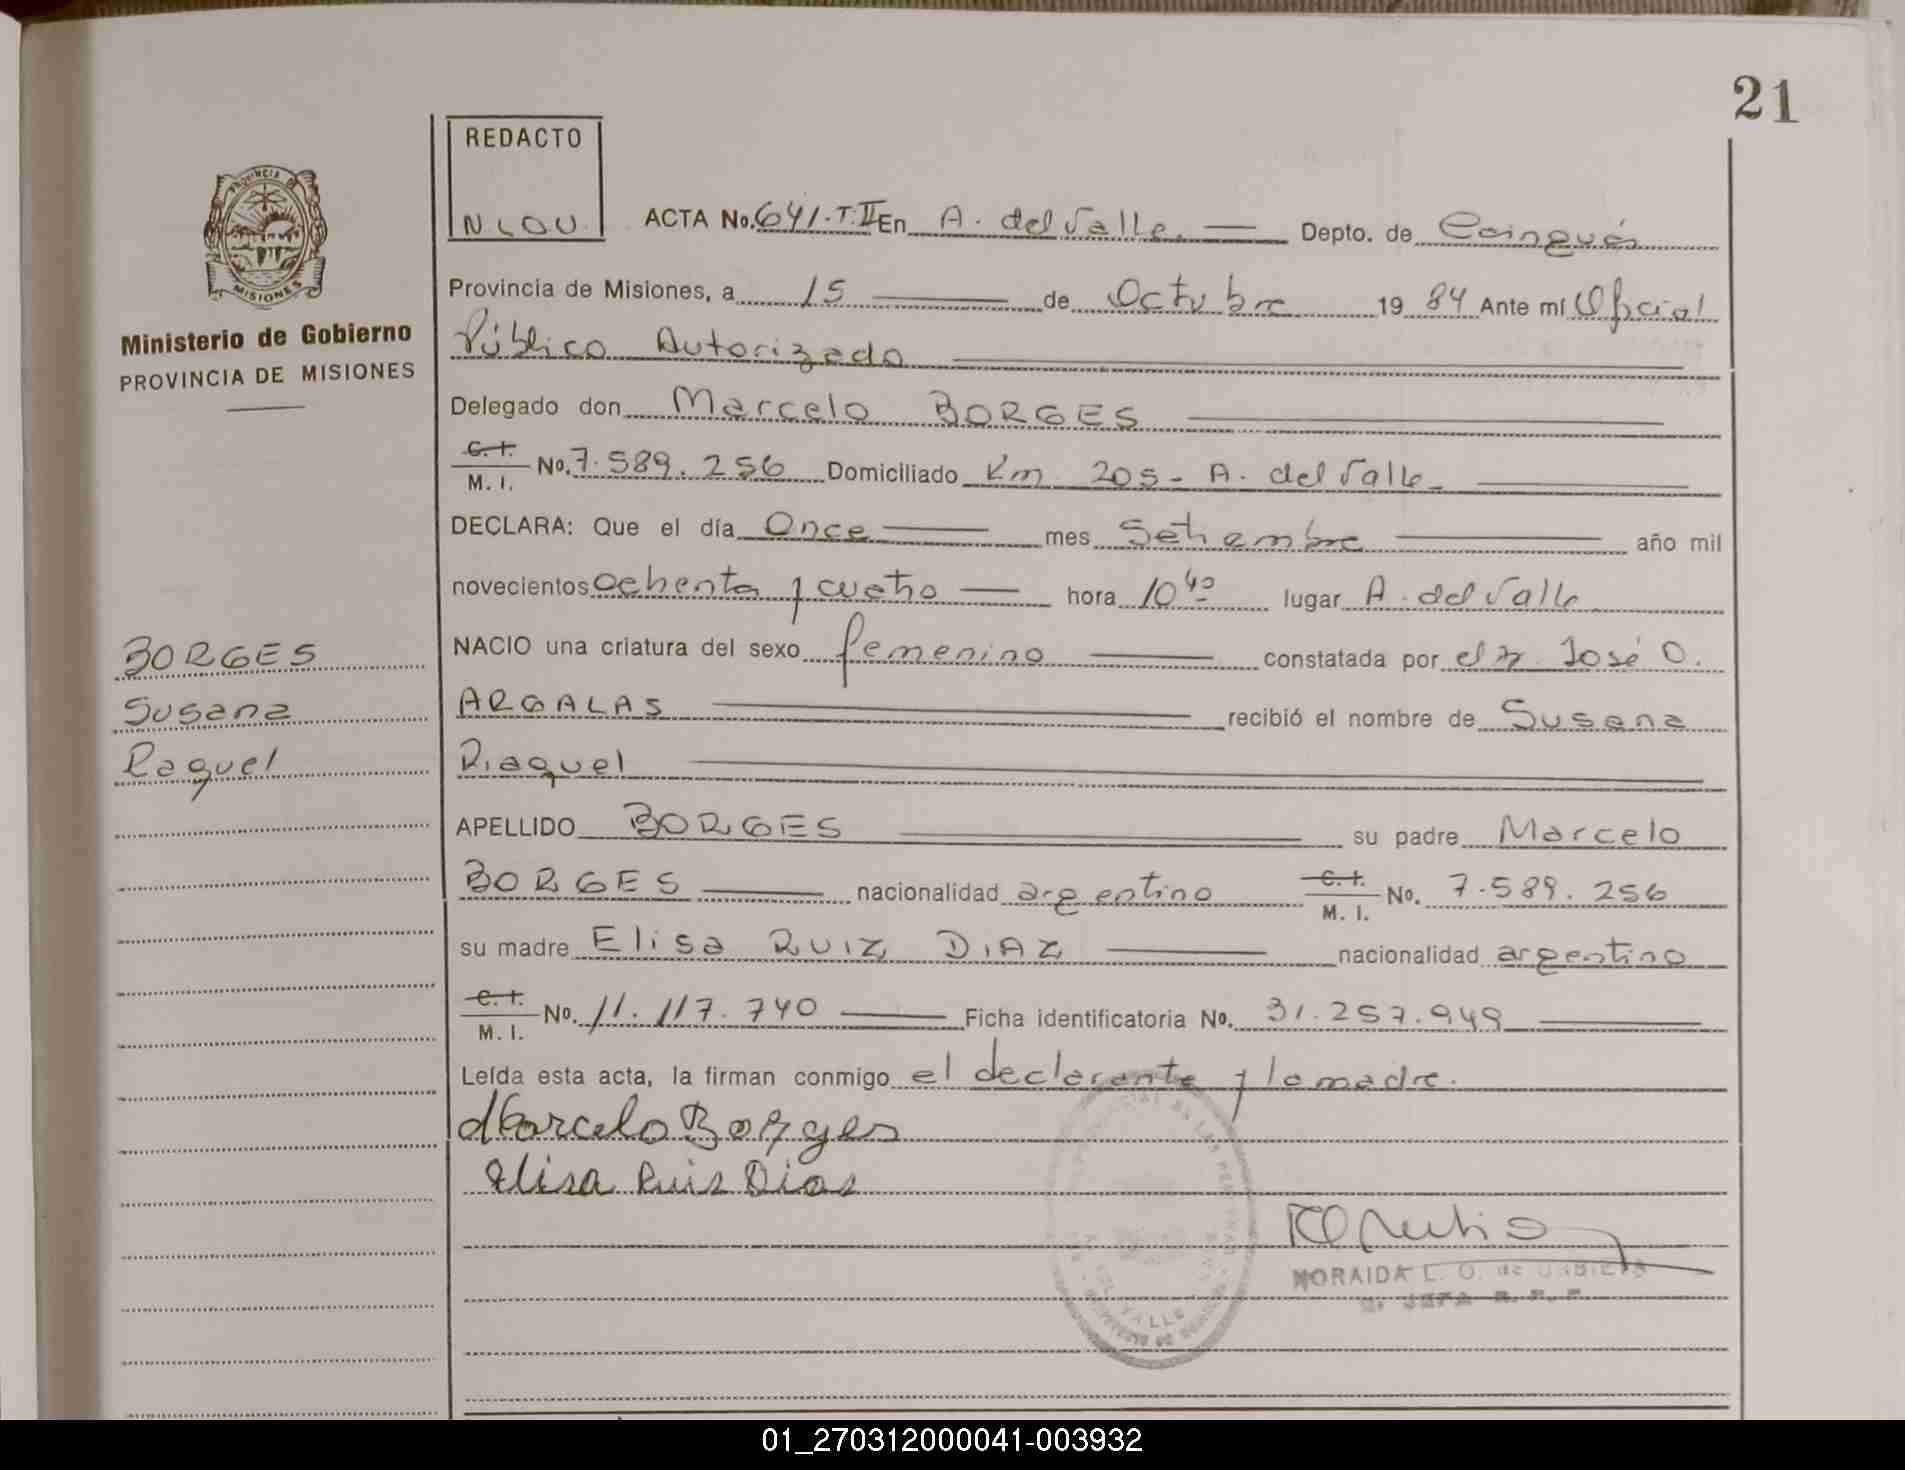 21
REDACTO
N.LOU.
PROVINCIA DE
MISIONES
Ministerio de Gobierno
PROVINCIA DE MISIONES
BORGES
Susana
Raquel
ACTA No. 641.T.II En A. del Valle. Depto. de Cainguás
Provincia de Misiones, a 15 de Octubre 19 84 Ante mí Oficial
Público Autorizado
Delegado don Marcelo BORGES
C. I. M. I. No. 7.589.256 Domiciliado Km. 205 - A. del Valle
DECLARA: Que el día Once mes Setiembre año mil
novecientos ochenta y cuatro hora 10 40 lugar A. del Valle
NACIO una criatura del sexo femenino constatada por el Dr. José O.
ARGALAS recibió el nombre de Susana
Raquel
APELLIDO BORGES su padre Marcelo
BORGES nacionalidad argentino C. I. M. I. No. 7.589.256
su madre Elisa RUIZ DIAZ nacionalidad argentino
C. I. M. I. No. 11.117.740 Ficha identificatoria No. 31.257.949
Leída esta acta, la firman conmigo el declarante y la madre.
Marcelo Borges
Elisa Ruis Dias
NORAIDA L. O. de
01_270312000041-003932